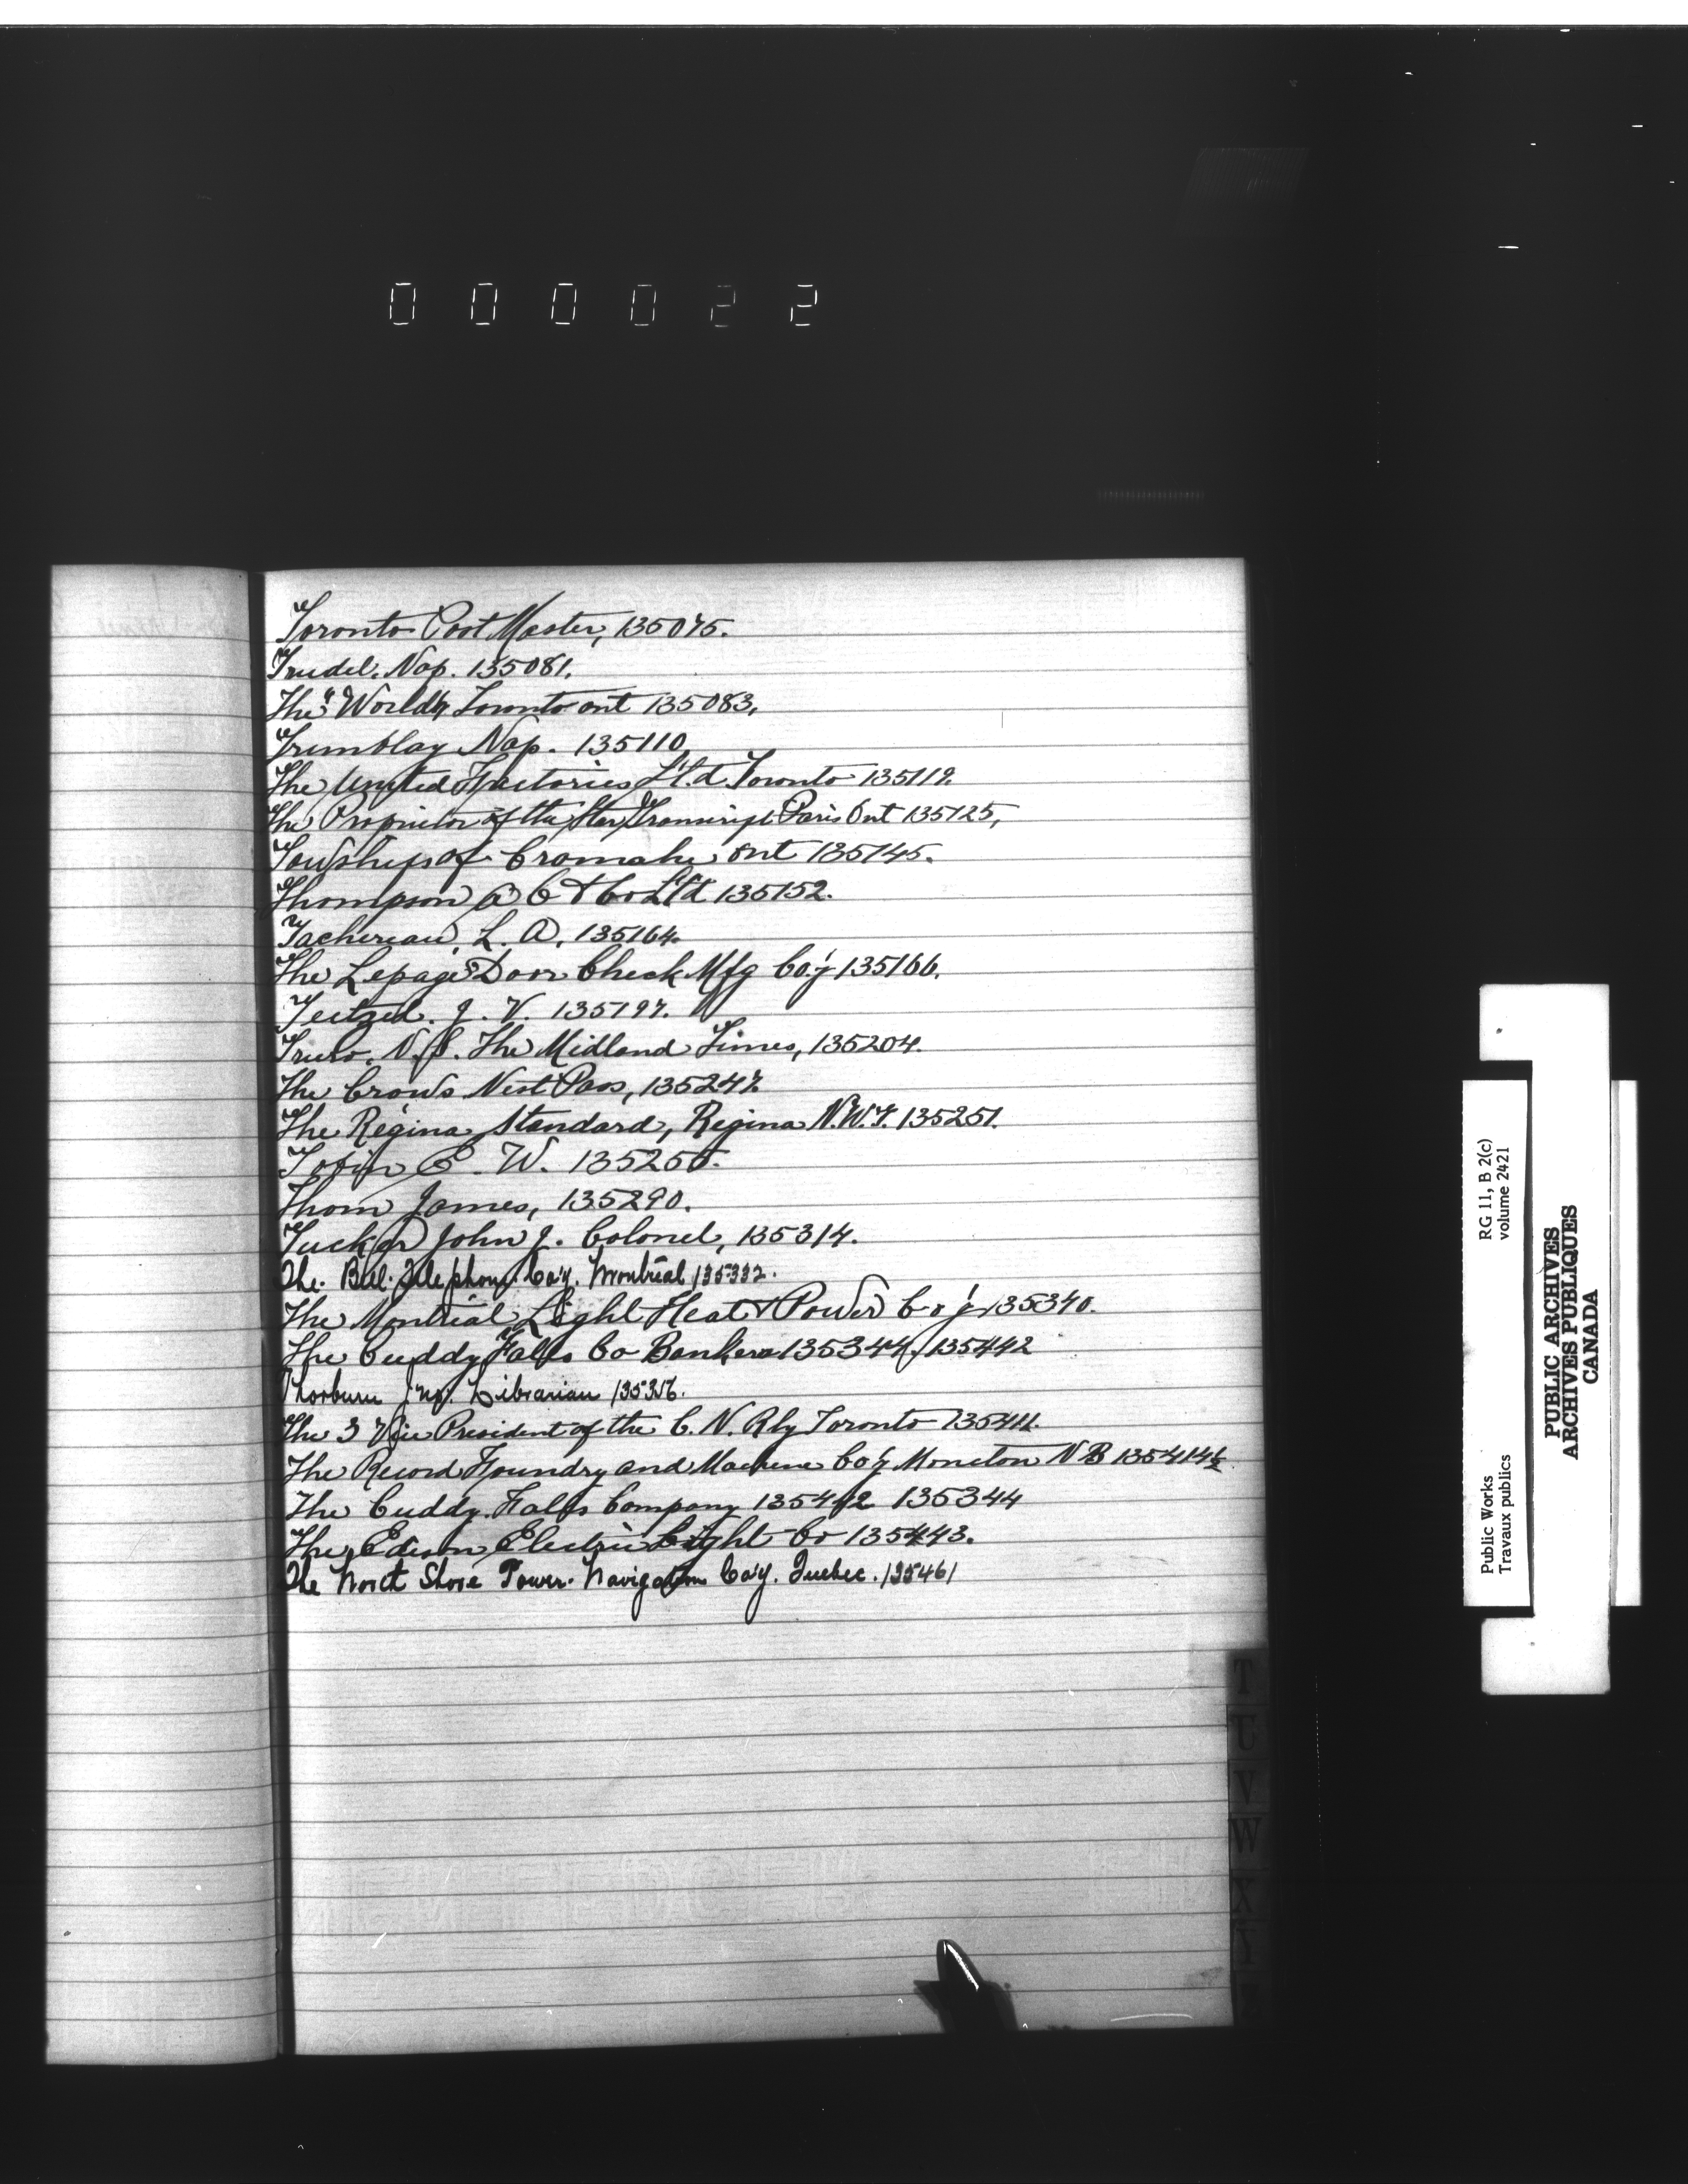 000022
Toronto Post Master, 135075.
Trudel. Nap. 135081.
The "World" Toronto ont 135083,
Trimblay Nap. 135110,
The United Factories L't.d Toronto 135119.
The Proprietor of the Star Transcript Paris Ont 135125,
Towships of Cromahe ont 135145.
Thompson A C & Co Ltd 135152.
Tachereau, L. A. 135164.
The Lepage Door Check Mfg Co'y 135166.
Teetzel. J. V. 135197.
Truro. N.S. The Midland Times, 135204.
The Crows Nest Pass, 135247.
The Regina Standard, Regina N.W.T. 135251.
Tobin E. W. 135255.
Thom James, 135290.
Tucker John J. Colonel, 135314.
The Bell Telephone Co'y. Montreal 135332.
The Montreal Light Heat & Power Co'y 135340.
The Cuddy Falls Co Bankers 135344/135442
Thorburn Jno. Librarian 135356.
The 3 Vice President of the C. N. Rly Toronto 135411.
The Record Foundry and Machine Co'y Moncton N B 135414½
The Cuddy Falls Company 135442 135344
The Edison Electric Light Co 135443.
The North Shore Power Navigation Co'y. Quebec. 135461
T
U
V
W
X
Y
Z
Public Works
Travaux publics
RG 11, B 2(c)
volume 2421
PUBLIC ARCHIVES
ARCHIVES PUBLIQUES
CANADA